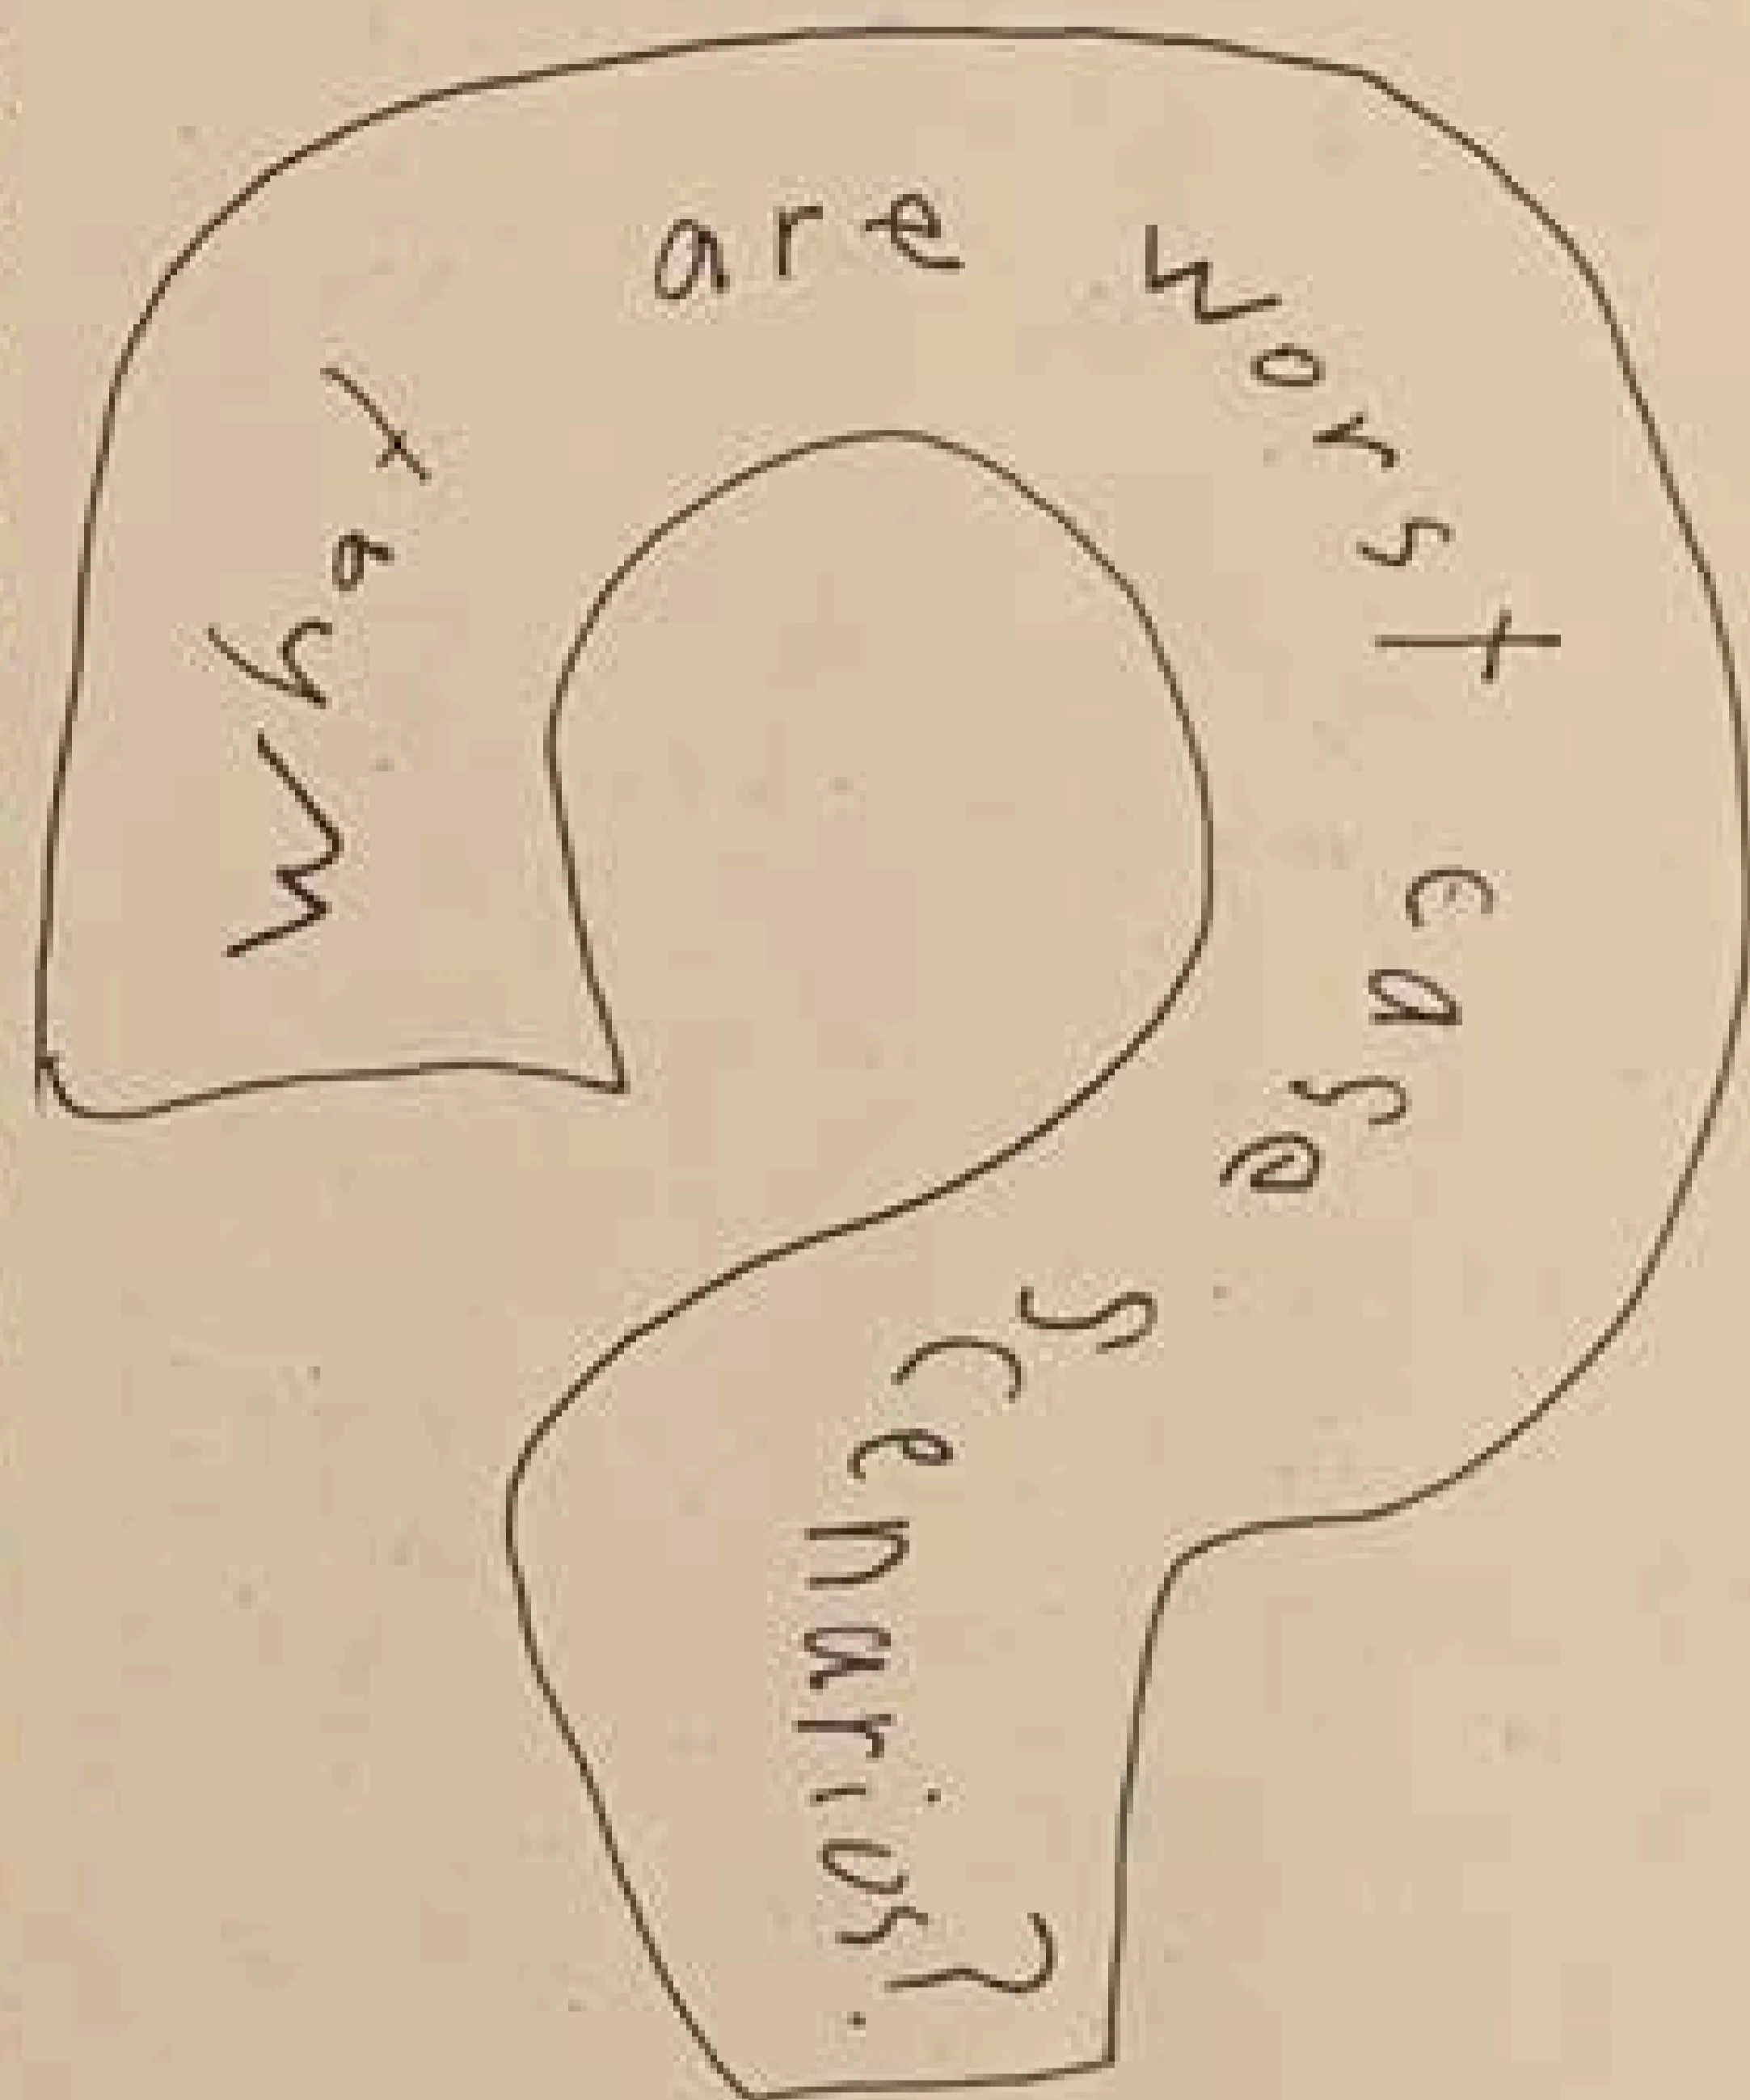 What are worst case scenarios?